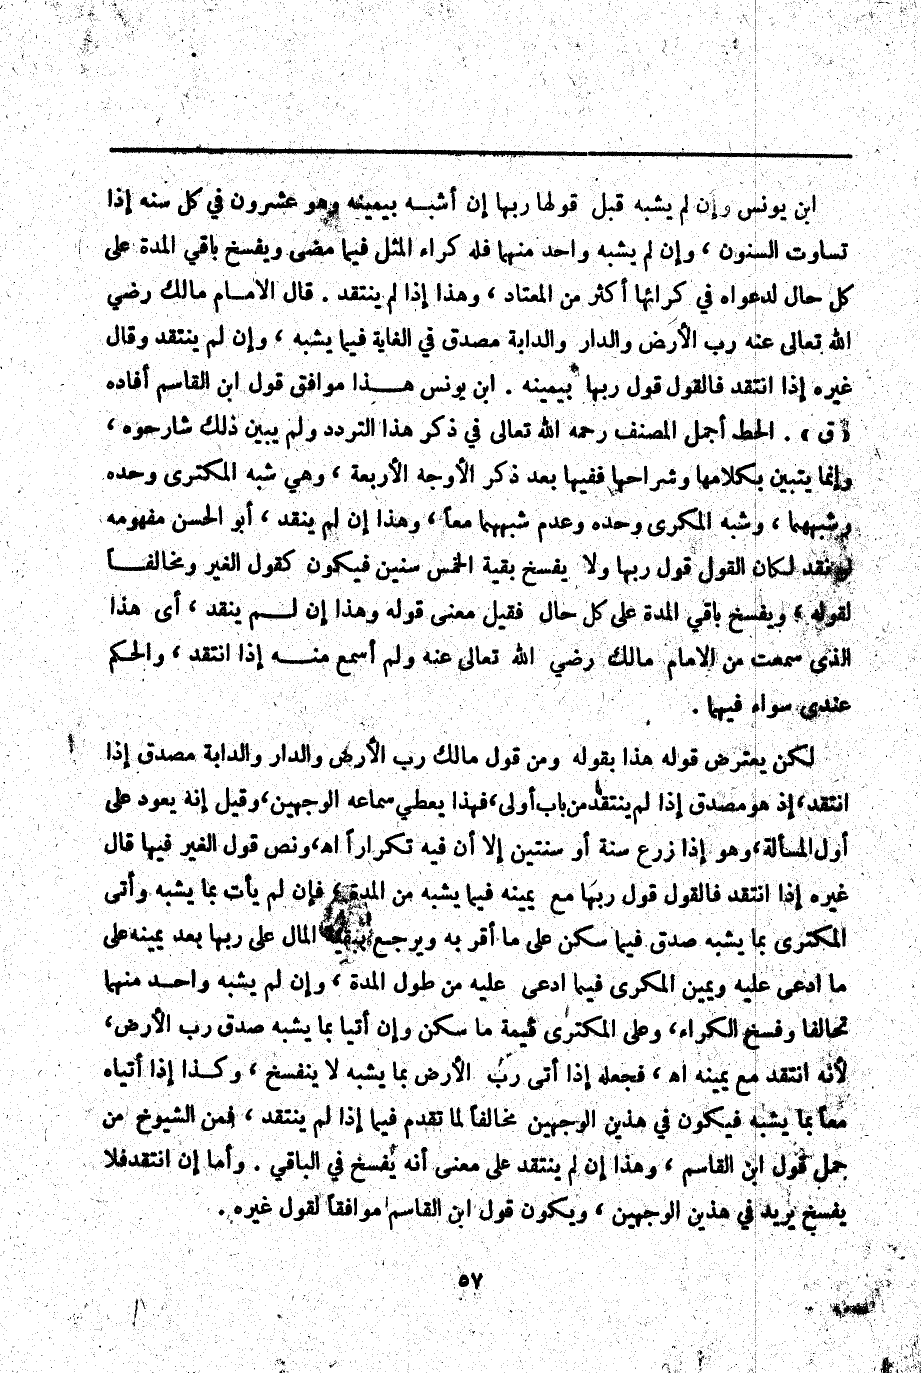 ابن يونس وإن لم يشبه قبل قولها ربها إن أشبـــه بيمينه وهو عشرون في كل سنه إذا
تساوت السنون ، وإن لم يشبه واحد منهما فله كراء المثل فيما مضى ويفسخ باقي المدة على
كل حال لدعواه في كرائها أكثر من المعتاد ، وهذا إذا لم ينتقد . قال الامـــام مالك رضي
الله تعالى عنه رب الأرض والدار والدابة مصدق في الغاية فيما يشبه ، وإن لم ينتقد وقال
غيره إذا انتقد فالقول قول ربها بيمينه . ابن يونس هـــذا موافق قول ابن القاسم أفاده
« ق » . الحط أجمل المصنف رحمه الله تعالى في ذكر هذا التردد ولم يبين ذلك شارحوه ،
وإنما يتبين بكلامها وشراحها ففيها بعد ذكر الأوجه الأربعة ، وهي شبه المكترى وحده
وشبههما ، وشبه المكرى وحده وعدم شبههما معاً ، وهذا إن لم ينقد ، أبو الحسن مفهومه
لو نقد لكان القول قول ربها ولا يفسخ بقية الخمس سنين فيكون كقول الغير ومخالفـــاً
لقوله ، ويفسخ باقي المدة على كل حال فقيل معنى قوله وهذا إن لـــم ينقد ، أى هذا
الذى سمعت من الامام مالك رضي الله تعالى عنه ولم أسمع منـــه إذا انتقد ، والحكم
عندى سواء فيهما .
لكن يعترض قوله هذا بقوله ومن قول مالك رب الأرض والدار والدابة مصدق إذا
انتقد،إذ هو مصدق إذا لم ينتقد من باب أولى،فهذا يعطي سماعه الوجهين،وقيل إنه يعود على
أول المسألة،وهو إذا زرع سنة أو سنتين إلا أن فيه تكراراً اه،ونص قول الغير فيها قال
غيره إذا انتقد فالقول قول ربها مع يمينه فيما يشبه من المدة ، فإن لم يأت بما يشبه وأتى
المكترى بما يشبه صدق فيما سكن على ما أقر به ويرجع ببقية المال على ربها بعد يمينه على
ما ادعى عليه ويمين المكرى فيما ادعى عليه من طول المدة ، وإن لم يشبه واحـــد منهما
تحالفا وفسخ الكراء، وعلى المكترى قيمة ما سكن وإن أتيا بما يشبه صدق رب الأرض،
لأنه انتقد مع يمينه اه ، فجعله إذا أتى رب الأرض بما يشبه لا ينفسخ ، وكـــذا إذا أتياه
معاً بما يشبه فيكون في هذين الوجهين مخالفاً لما تقدم فيما إذا لم ينتقد ، فمن الشيوخ من
جمل قول ابن القاسم ، وهذا إن لم ينتقد على معنى أنه يفسخ في الباقي . وأما إن انتقدفلا
يفسخ يريد في هذين الوجهين ، ويكون قول ابن القاسم موافقاً لقول غيره .
٥٧